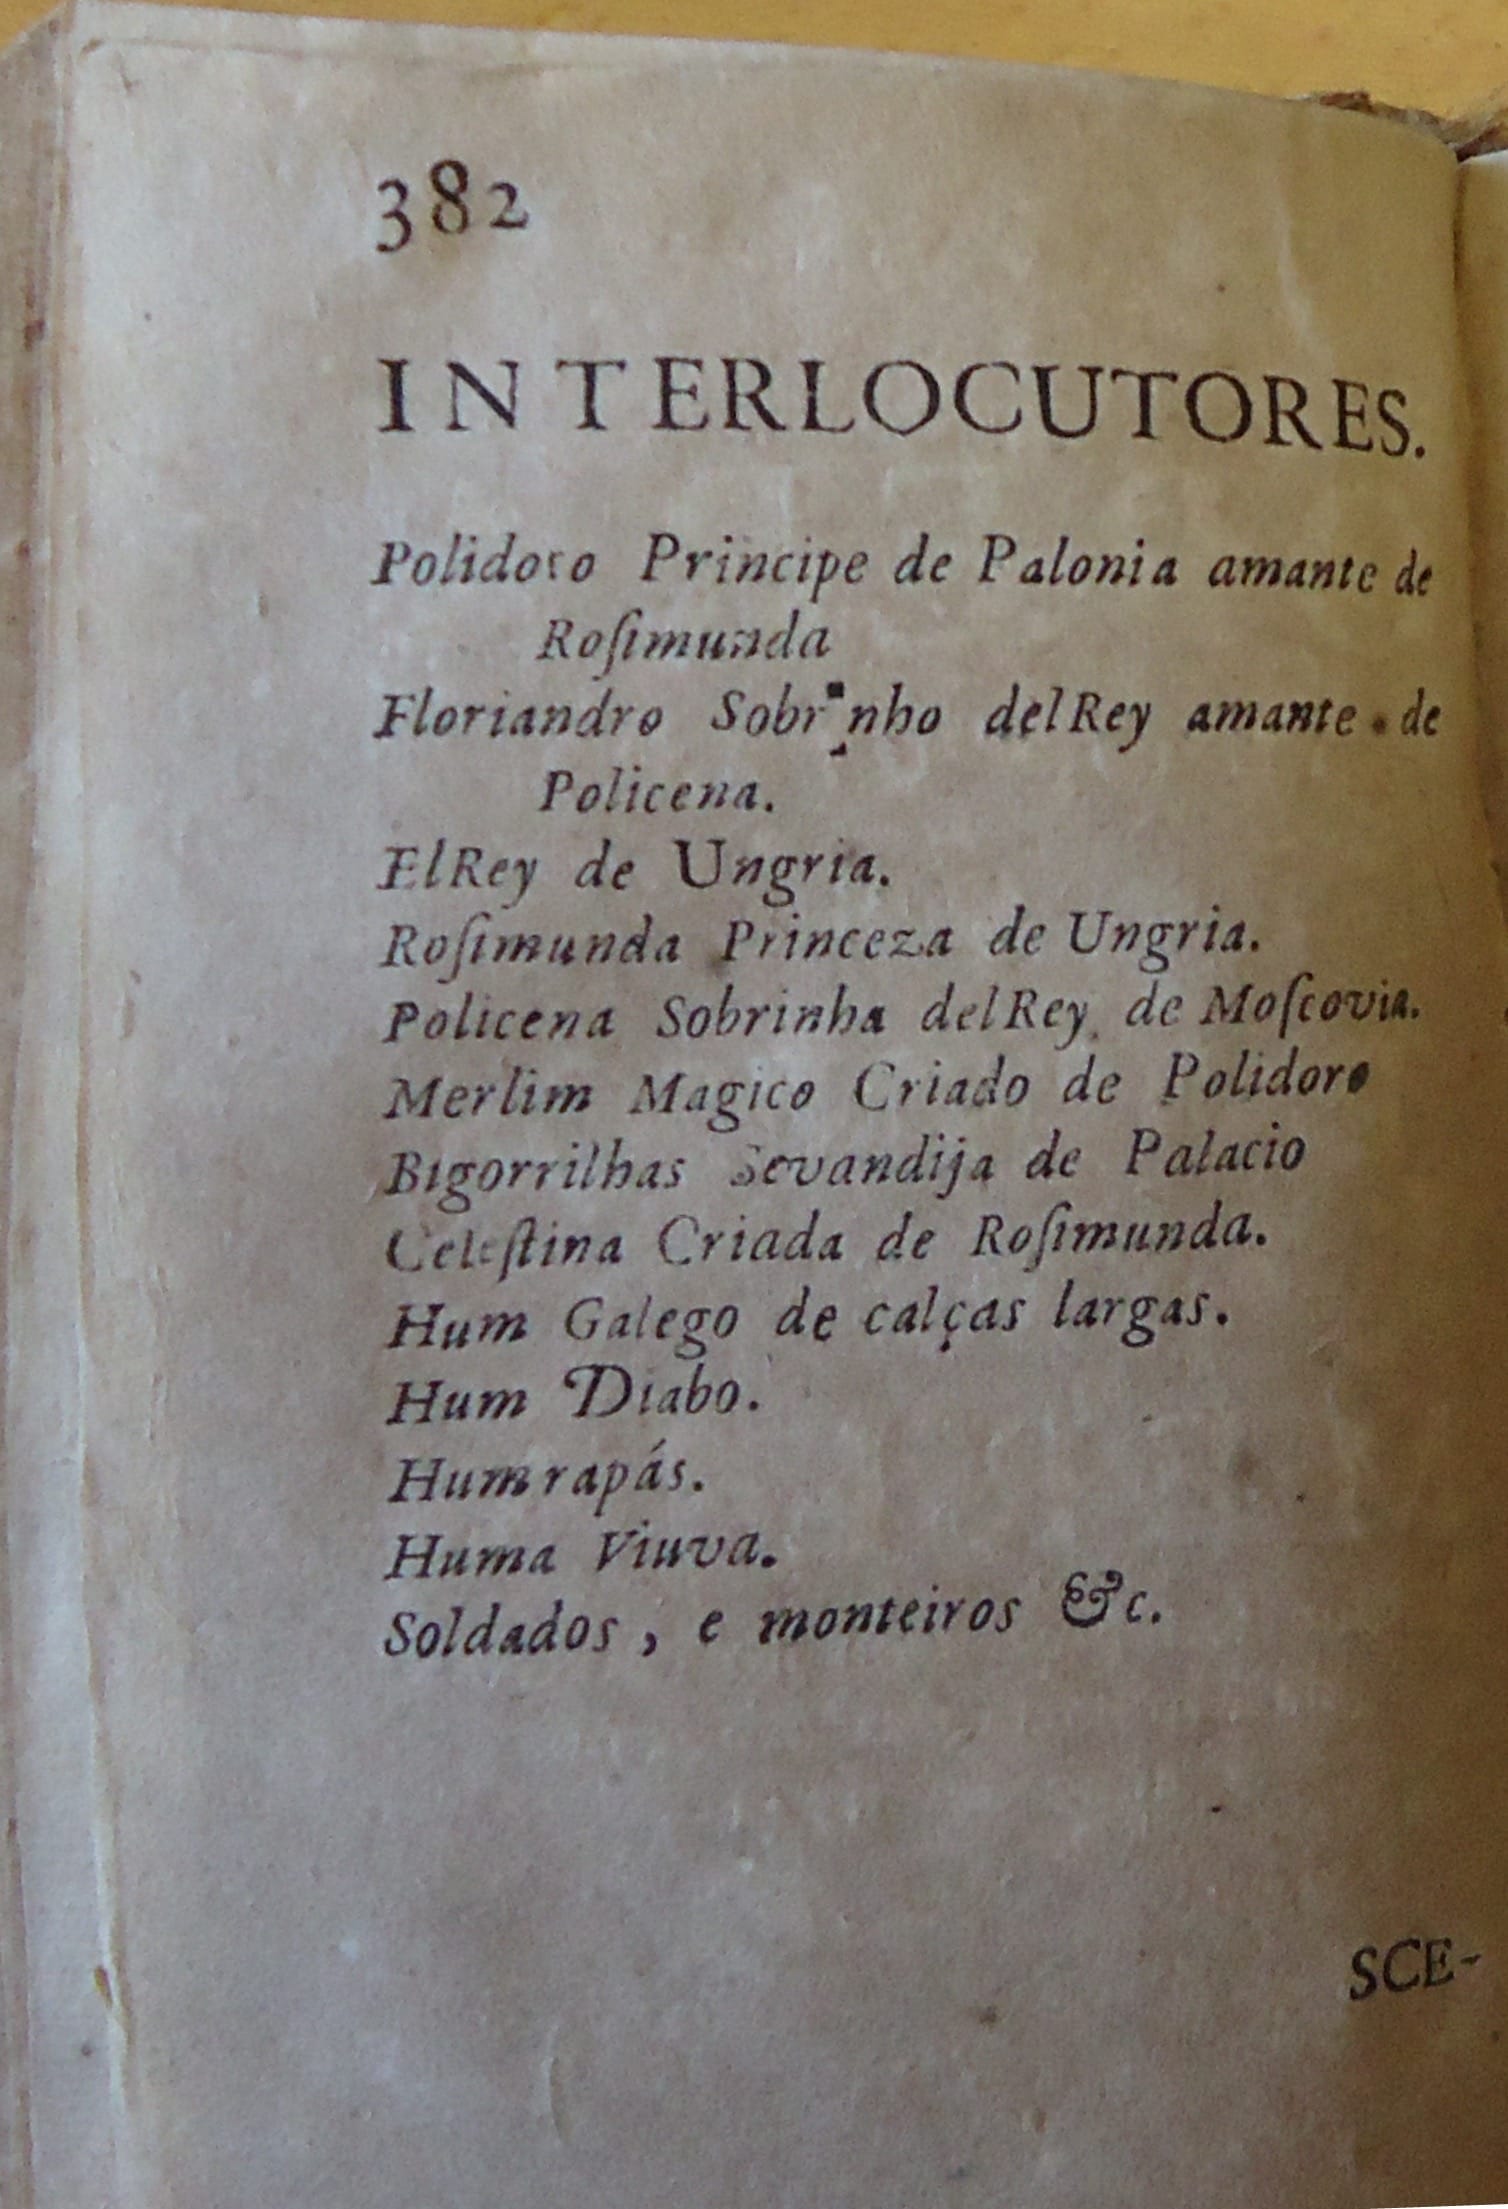 382
INTERLOCUTORES.
Polidoro Principe de Palonia amante de
Roſimunda
Floriandro Sobrinho delRey amante de
Policena.
ElRey de Ungria.
Roſimunda Princeza de Ungria.
Policena Sobrinha delRey de Moſcovia.
Merlim Magico Criado de Polidoro
Bigorrilhas Sevandija de Palacio
Celeſtina Criada de Roſimunda.
Hum Galego de calças largas.
Hum Diabo.
Hum rapás.
Huma Viuva.
Soldados, e monteiros &c.
SCE-